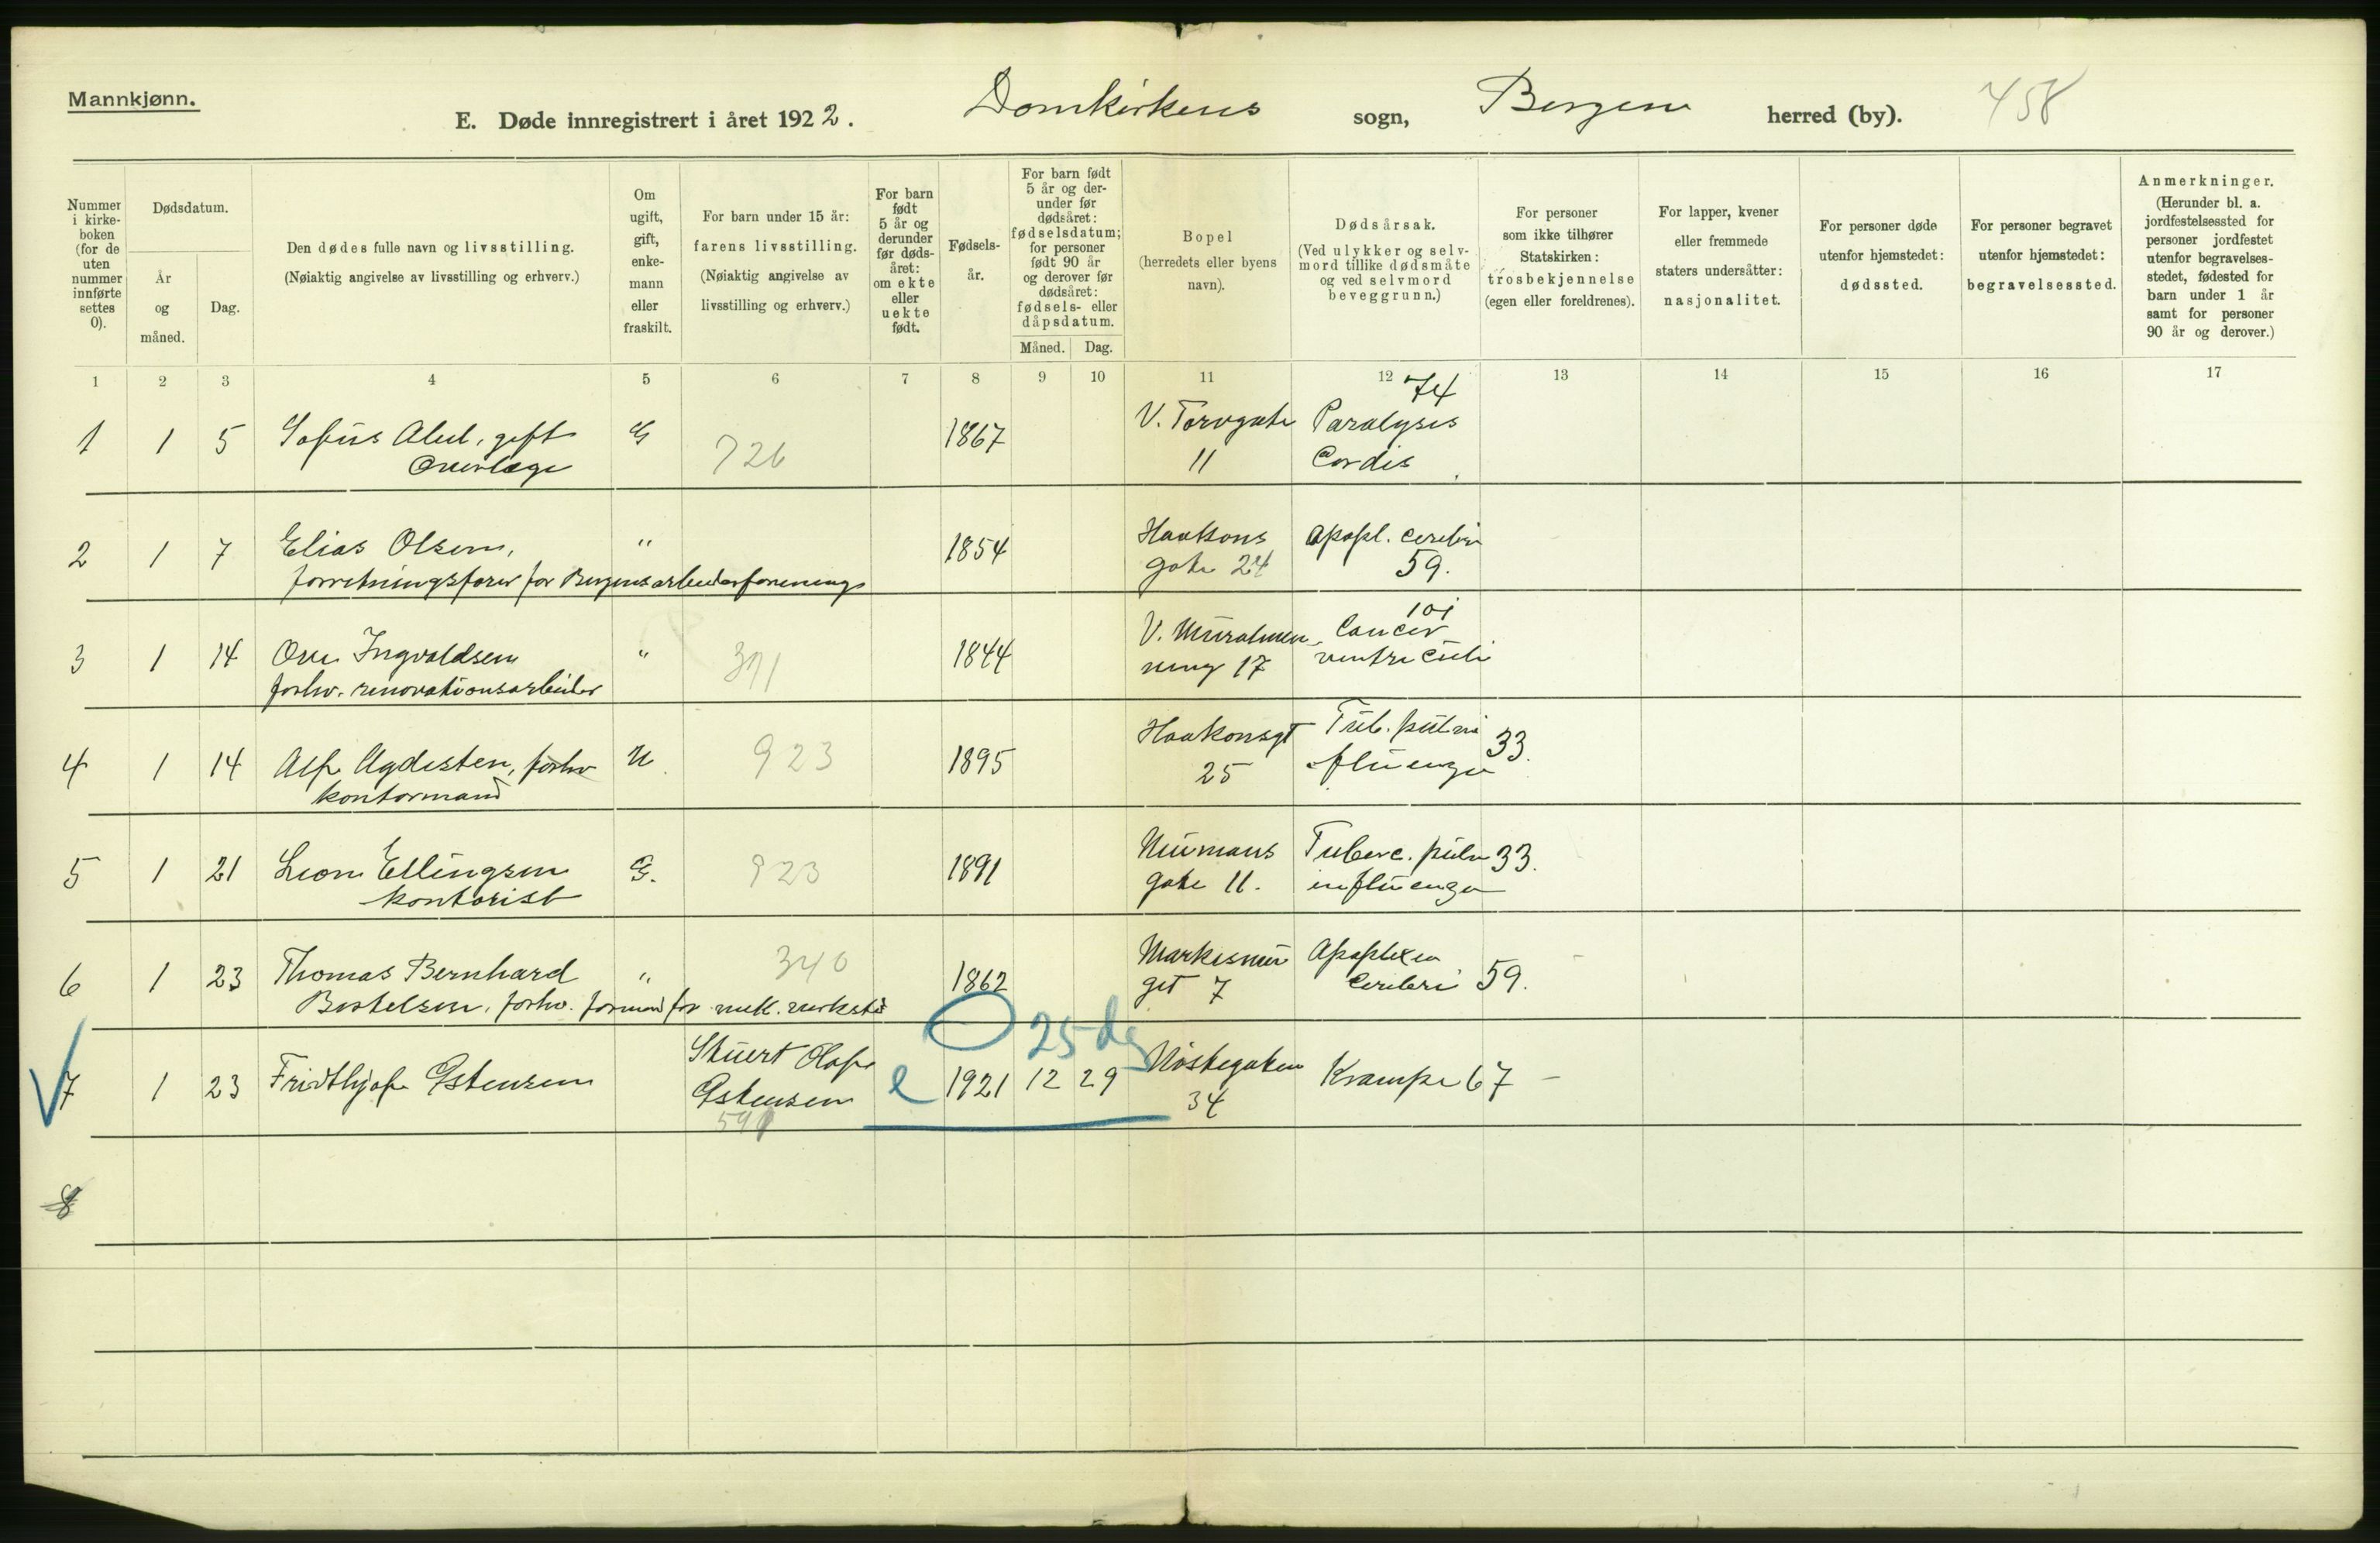 Mannkjønn.
E. Døde innregistrert i året 1922. Domkirkens sogn, Bergen herred (by). 458
Nummer i kirke-boken (for de uten nummer innførte settes 0).
Dødsdatum.
År og måned.
Dag.
Den dødes fulle navn og livsstilling.
(Nøiaktig angivelse av livsstilling og erhverv.)
Om ugift, gift, enke-mann eller fraskilt.
For barn under 15 år: farens livsstilling.
(Nøiaktig angivelse av livsstilling og erhverv.)
For barn født 5 år og derunder før døds-året: om ekte eller uekte født.
Fødsels-år.
For barn født 5 år og der-under før dødsåret: fødselsdatum; for personer født 90 år og derover før dødsåret: fødsels- eller dåpsdatum.
Måned. Dag.
Bopel (herredets eller byens navn).
Dødsårsak.
(Ved ulykker og selv-mord tillike dødsmåte og ved selvmord beveggrunn.)
For personer som ikke tilhører Statskirken: trosbekjennelse (egen eller foreldrenes).
For lapper, kvener eller fremmede staters undersåtter: nasjonalitet.
For personer døde utenfor hjemstedet: dødssted.
For personer begravet utenfor hjemstedet: begravelsessted.
Anmerkninger.
(Herunder bl. a. jordfestelsessted for personer jordfestet utenfor begravelses-stedet, fødested for barn under 1 år samt for personer 90 år og derover.)
1 2 3 4 5 6 7 8 9 10 11 12 13 14 15 16 17
74
1 1 5 Sofus Abel, gift G 726 1867 V. Torvgate Paralysis
Overlæge 11 Cordis
2 1 7 Elias Olsen, " 1854 Haakons apopl. cerebri
forretningsfører for Bergens arbeiderforening gate 24 59.
101
3 1 14 Ove Ingvaldsen " 391 1844 V. Muralmen Cancer
forhv. renovationsarbeider ning 17 ventriculi
4 1 14 Alf Agdesten, forhv U 923 1895 Haakonsgt Tub. pulm 33.
kontormand 25
5 1 21 Leon Ellingsen G. 923 1891 Neumans Tuberc. pulm 33.
kontorist gate 11. influenza
6 1 23 Thomas Bernhard " 340 1862 Markesmu Apoplexia
Bertelsen, forhv. formand for mek. verksted get 7 Cerebri 59.
25 dg
7 1 23 Fridthjof Østensen Stuert Olaf e 1921 12 29 Nøstegaten Krampe 67 –
Østensen 34
591
8